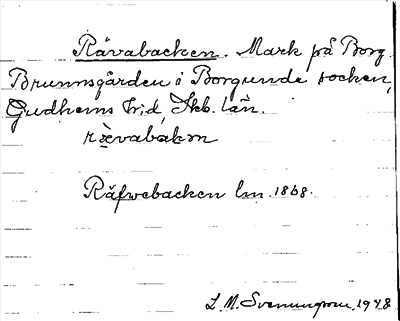 Rävabacken. Mark på Borg.
Brunnsgården i Borgunda socken,
Gudhems hrd, Skb. län.
Räfwebacken lm. 1868.
L. M. Svenungsson, 1948